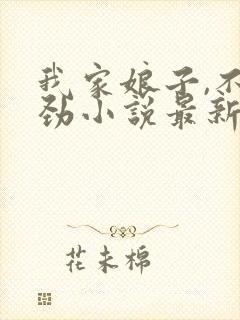 我家娘子,不
劲小说最新
花未棉